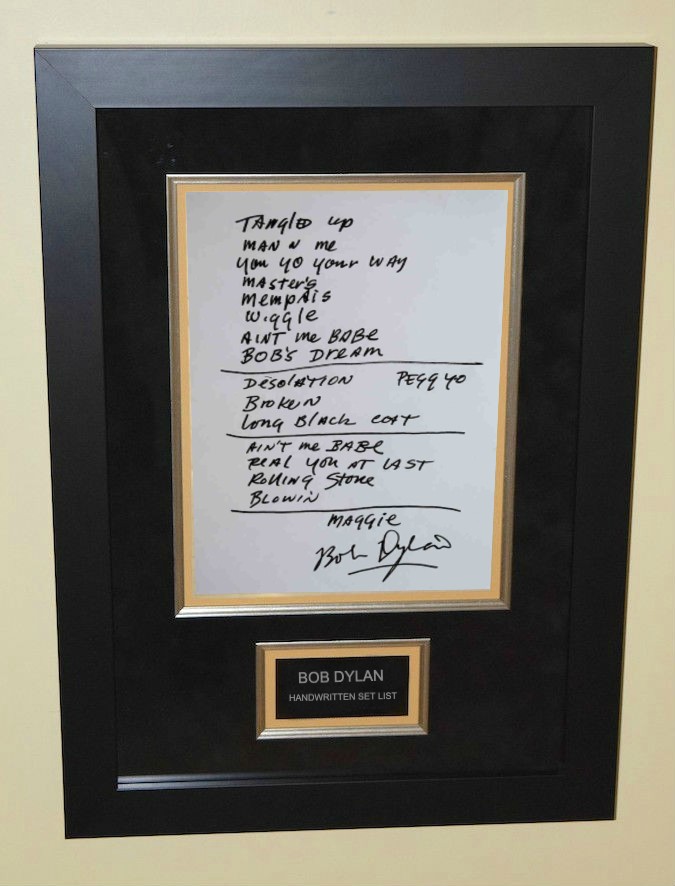 TANGLED up
MAN N me
you YO your WAY
MASTER'S
MEMPHIS
WIGGLE
AINT me BABE
BOB'S DREAM
DESOLATION PEGGY YO
BROKEN
Long BLACK COAT
AIN'T me BABE
REAL YOU AT LAST
ROLLING STONE
BLOWIN
MAGGIE
Bob Dylan
BOB DYLAN
HANDWRITTEN SET LIST